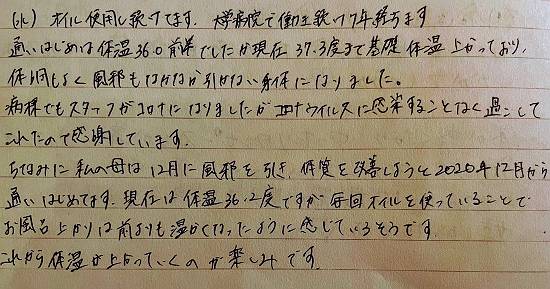 オイル使用し続けてます。大学病院で働き続け7年経ちます
通いはじめは体温36.0前半でしたが現在37.3度まで基礎体温上がっており、
体調もよく風邪もなかなか引かない身体になりました。
病棟でもスタッフがコロナになりましたがコロナウイルスに感染することなく過ごして
これたので感謝しています。
ちなみに私の母は12月に風邪を引き、体質を改善しようと2020年12月から
通いはじめてます。現在は体温36.2度ですが毎回オイルを使っていることで
お風呂上がりは前よりも温かくなったように感じているそうです。
これから体温が上がっていくのが楽しみです。